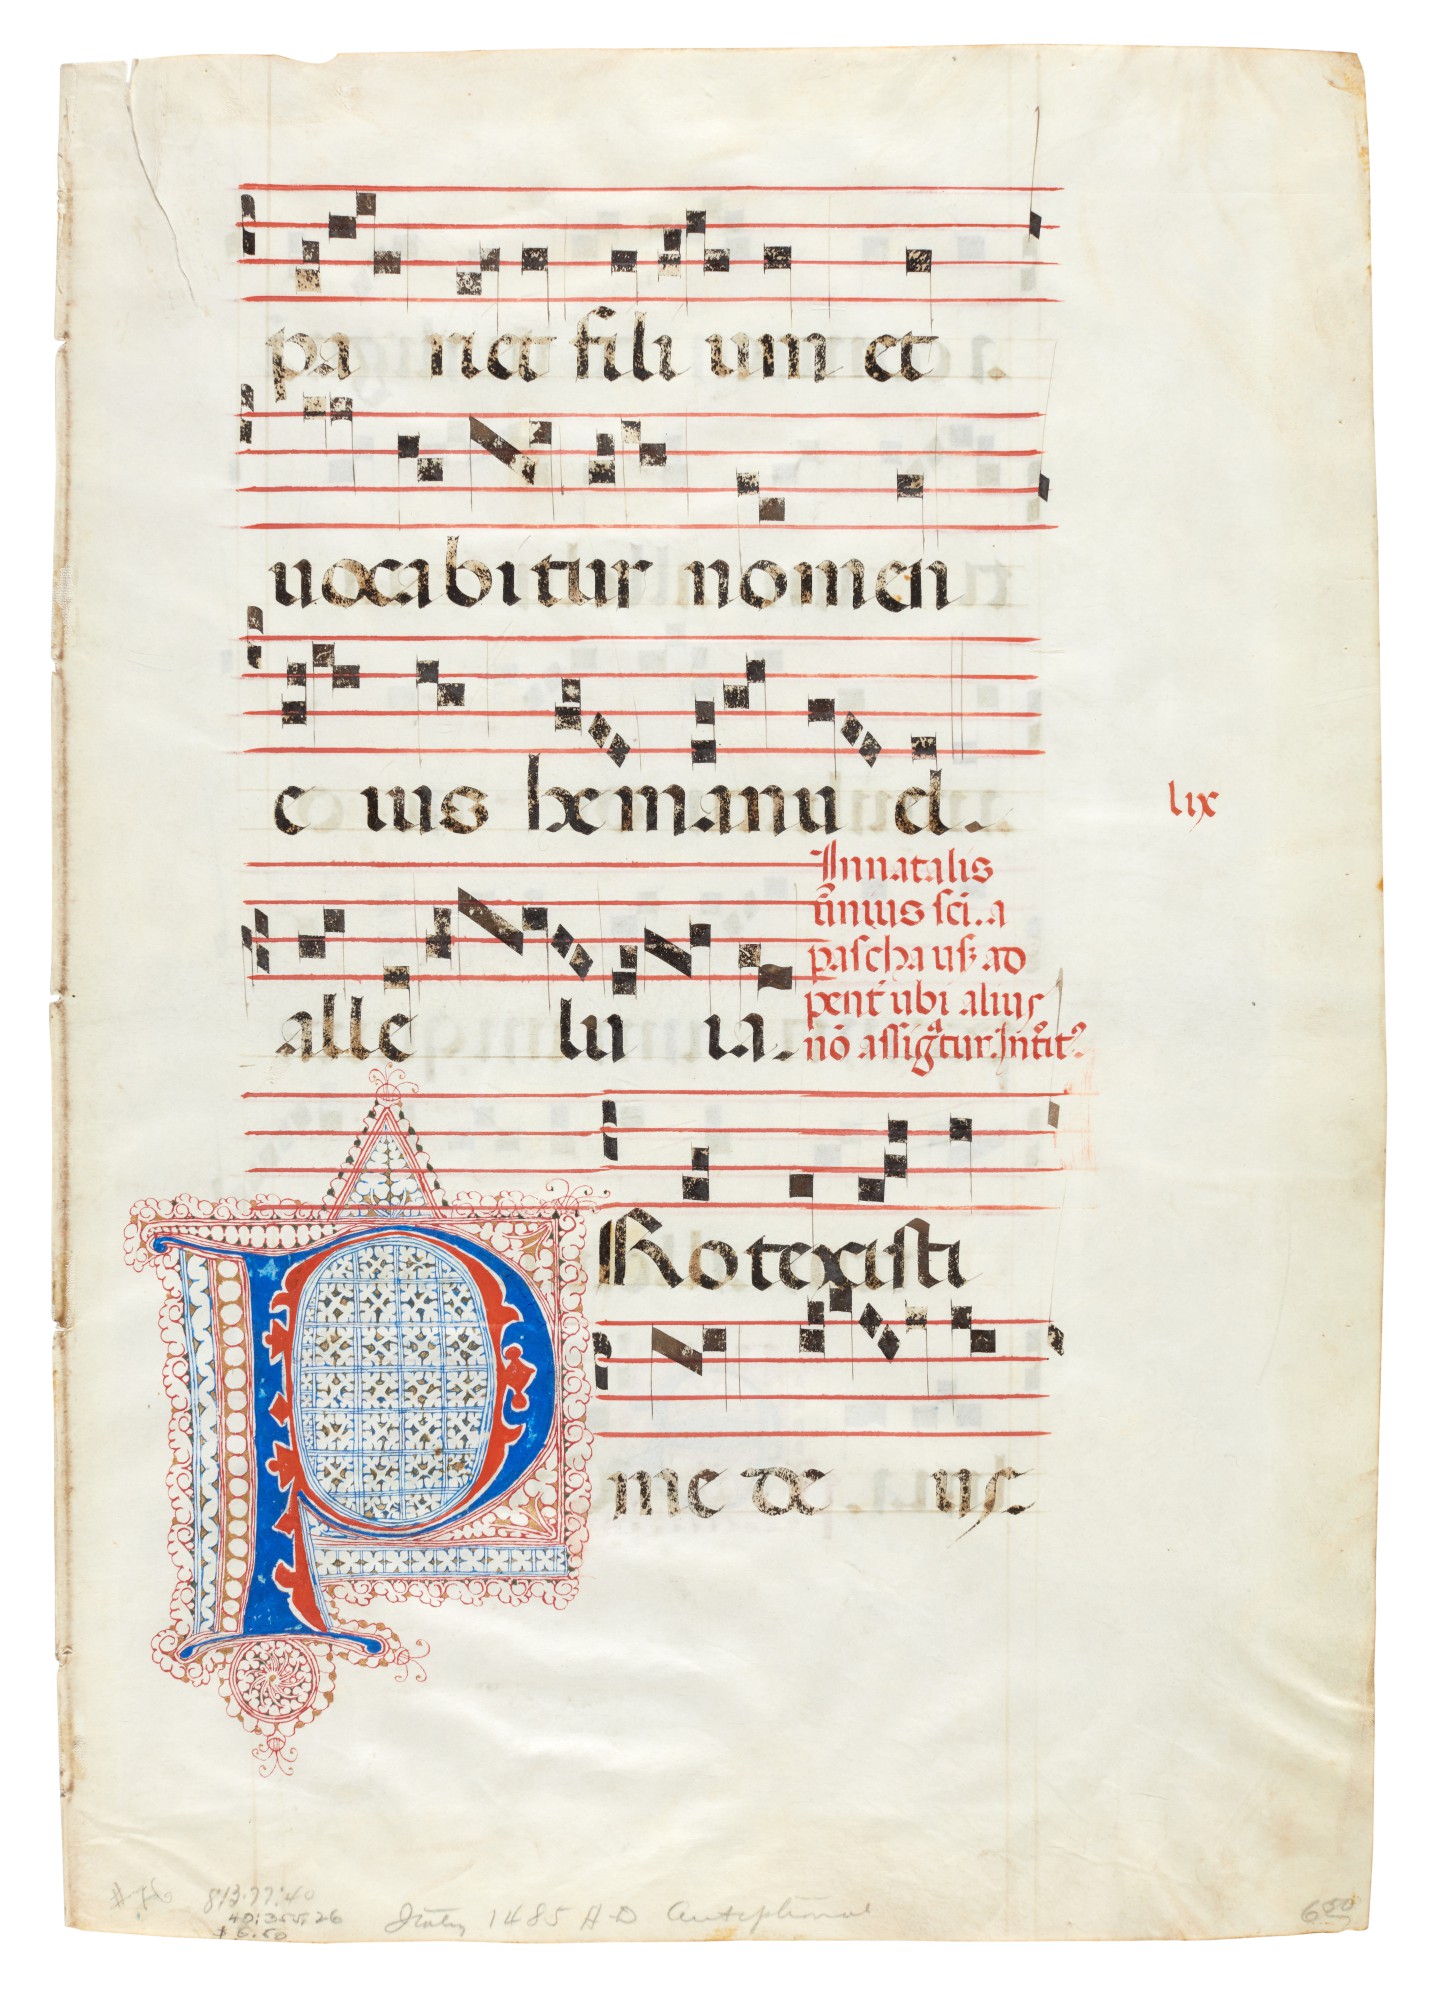 pa riet fili um et
uocabitur nomen
e ius hemanu el.
lix
alle lu ia.
In natalis
unius sci. a
pascha usq ad
pent ubi alius
nō assigtur. Introit
PRotexisti
me de us.
813.77:40
40:355.26
$6.50
Italy 1485 A-D Antiphonal
6 50